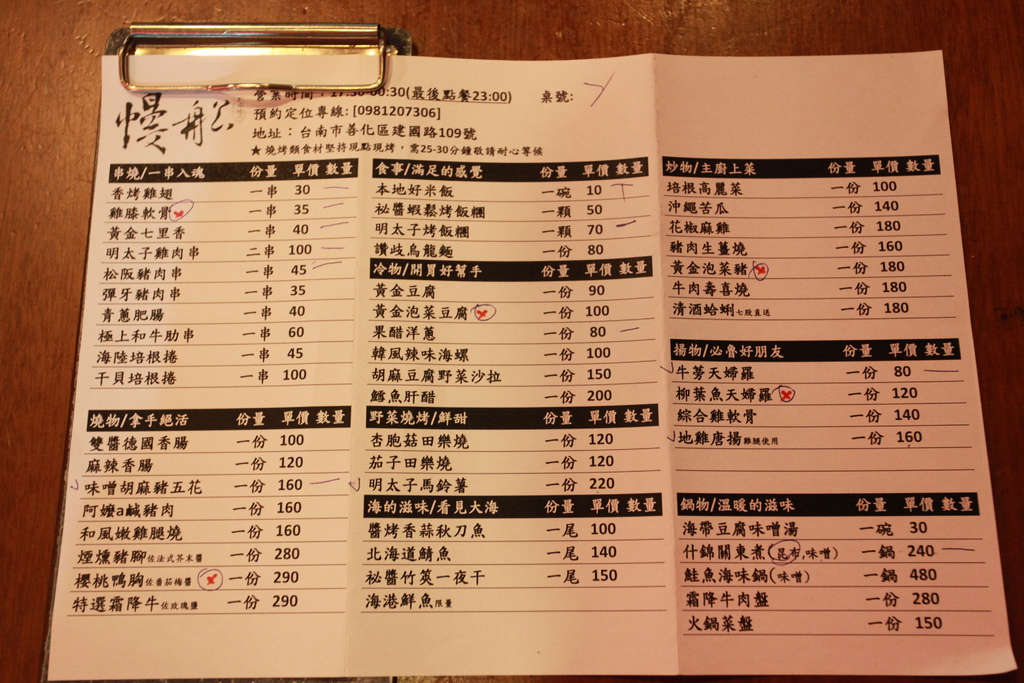 慢船
營業時間：17:30-00:30(最後點餐23:00)
桌號:
預約定位專線: [0981207306]
地址：台南市善化區建國路109號
★ 燒烤類食材堅持現點現烤，需25-30分鐘敬請耐心等候
串燒/一串入魂 份量 單價 數量
香烤雞翅 一串 30
雞膝軟骨 一串 35
黃金七里香 一串 40
明太子雞肉串 二串 100
松阪豬肉串 一串 45
彈牙豬肉串 一串 35
青蔥肥腸 一串 40
極上和牛肋串 一串 60
海陸培根捲 一串 45
干貝培根捲 一串 100
燒物/拿手絕活 份量 單價 數量
雙醬德國香腸 一份 100
麻辣香腸 一份 120
味噌胡麻豬五花 一份 160
阿嬤a鹹豬肉 一份 160
和風嫩雞腿燒 一份 160
煙燻豬腳佐法式芥末醬 一份 280
櫻桃鴨胸佐番茄梅醬 一份 290
特選霜降牛佐玫瑰鹽 一份 290
食事/滿足的感覺 份量 單價 數量
本地好米飯 一碗 10
祕醬蝦鬆烤飯糰 一顆 50
明太子烤飯糰 一顆 70
讚歧烏龍麵 一份 80
冷物/開胃好幫手 份量 單價 數量
黃金豆腐 一份 90
黃金泡菜豆腐 一份 100
果醋洋蔥 一份 80
韓風辣味海螺 一份 100
胡麻豆腐野菜沙拉 一份 150
鱈魚肝醋 一份 200
野菜燒烤/鮮甜 份量 單價 數量
杏胞菇田樂燒 一份 120
茄子田樂燒 一份 120
明太子馬鈴薯 一份 220
海的滋味/看見大海 份量 單價 數量
醬烤香蒜秋刀魚 一尾 100
北海道鯖魚 一尾 140
祕醬竹筴一夜干 一尾 150
海港鮮魚限量
炒物/主廚上菜 份量 單價 數量
培根高麗菜 一份 100
沖繩苦瓜 一份 140
花椒麻雞 一份 180
豬肉生薑燒 一份 160
黃金泡菜豬 一份 180
牛肉壽喜燒 一份 180
清酒蛤蜊七股直送 一份 180
揚物/必魯好朋友 份量 單價 數量
牛蒡天婦羅 一份 80
柳葉魚天婦羅 一份 120
綜合雞軟骨 一份 140
地雞唐揚雞腿使用 一份 160
鍋物/溫暖的滋味 份量 單價 數量
海帶豆腐味噌湯 一碗 30
什錦關東煮(昆布,味噌) 一鍋 240
鮭魚海味鍋(味噌) 一鍋 480
霜降牛肉盤 一份 280
火鍋菜盤 一份 150